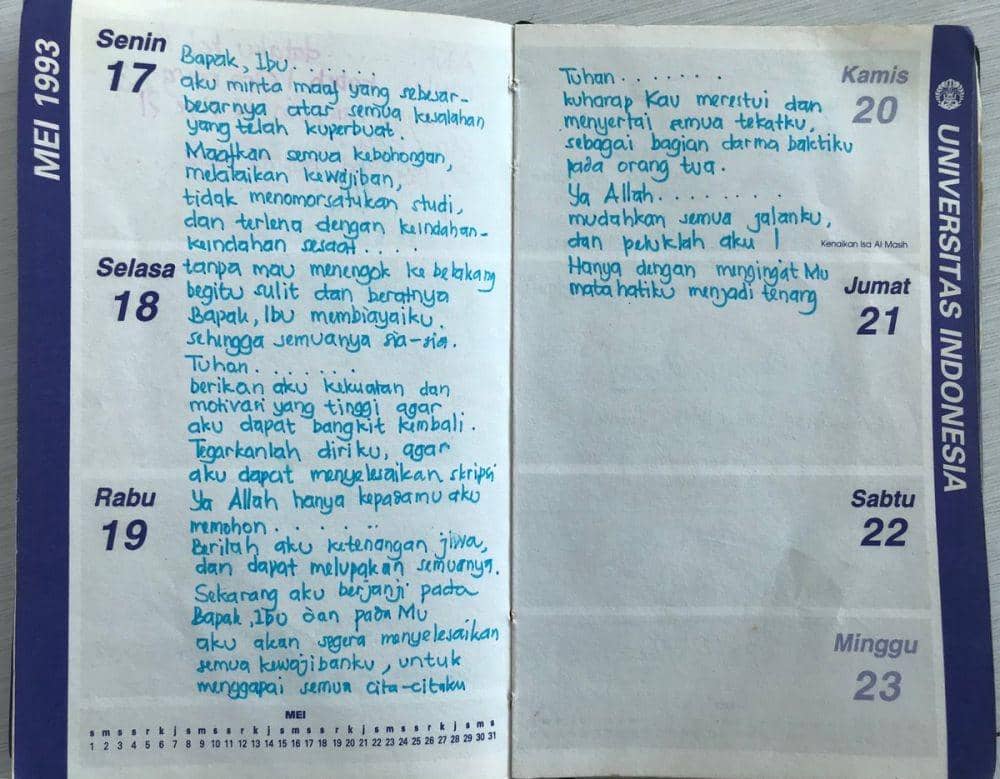 MEI 1993
Senin
17
Bapak, Ibu. . . . . .
aku minta maaf yang sebesar-
besarnya atas semua kesalahan
yang telah kuperbuat.
Maafkan semua kebohongan,
melalaikan kewajiban,
tidak menomorsatukan studi,
dan terlena dengan keindahan-
keindahan sesaat. . . .
Selasa
18
tanpa mau menengok ke belakang
begitu sulit dan beratnya
Bapak, Ibu membiayaiku.
sehingga semuanya sia-sia.
Tuhan. . . . . . .
berikan aku kekuatan dan
motivasi yang tinggi agar
aku dapat bangkit kembali.
Tegarkanlah diriku, agar
aku dapat menyelesaikan skripsi
Rabu
19
Ya Allah hanya kepadamu aku
memohon. . . . . . .
Berilah aku ketenangan jiwa,
dan dapat melupakan semuanya.
Sekarang aku berjanji pada
Bapak, Ibu dan pada Mu
aku akan segera menyelesaikan
semua kewajibanku, untuk
menggapai semua cita-citaku
MEI
s m s r k j s m s r k j s m s r k j s m s r k j s m s
1 2 3 4 5 6 7 8 9 10 11 12 13 14 15 16 17 18 19 20 21 22 23 24 25 26 27 28 29 30 31
Tuhan. . . . . . . .
kuharap Kau merestui dan
menyertai semua tekatku,
sebagai bagian darma baktiku
pada orang tua.
Ya Allah. . . . . . . .
mudahkan semua jalanku,
dan peluklah aku !
Kamis
20
Kenaikan Isa Al Masih
Hanya dengan mengingat Mu
mata hatiku menjadi tenang
Jumat
21
Sabtu
22
Minggu
23
UNIVERSITAS INDONESIA